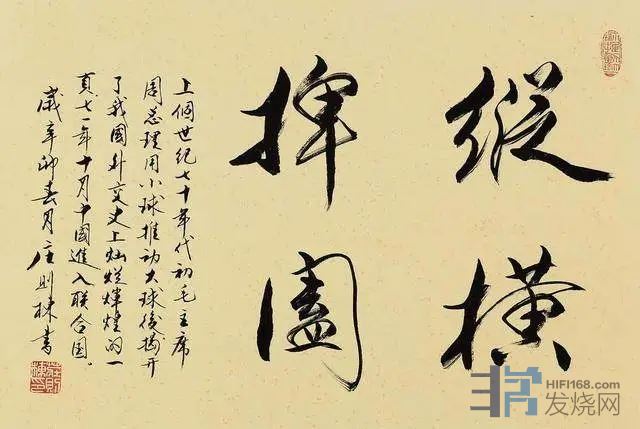 縱橫
捭闔
上個世紀七十年代初毛主席
周总理用小球推动大球後揭开
了我國外交史上灿烂輝煌的一
頁七一年十月中國進入联合国。
歲辛卯春月庄则栋書
莊則棟印
HIFI168.com
发烧网